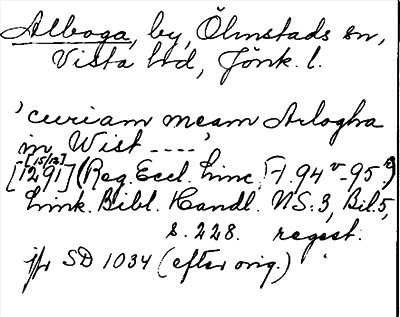 Alboga, by, Ölmstads sn,
Vista hd, Jönk. l.
'curiam meam Arlogha
in Wist ----'
[15/12]
[1291] (Reg. Eccl. Linc. f. 94 v-95 r)
Link. Bibl. Handl. NS:3, Bil. 5,
s. 228. regest.
jfr SD 1034 (efter orig.)